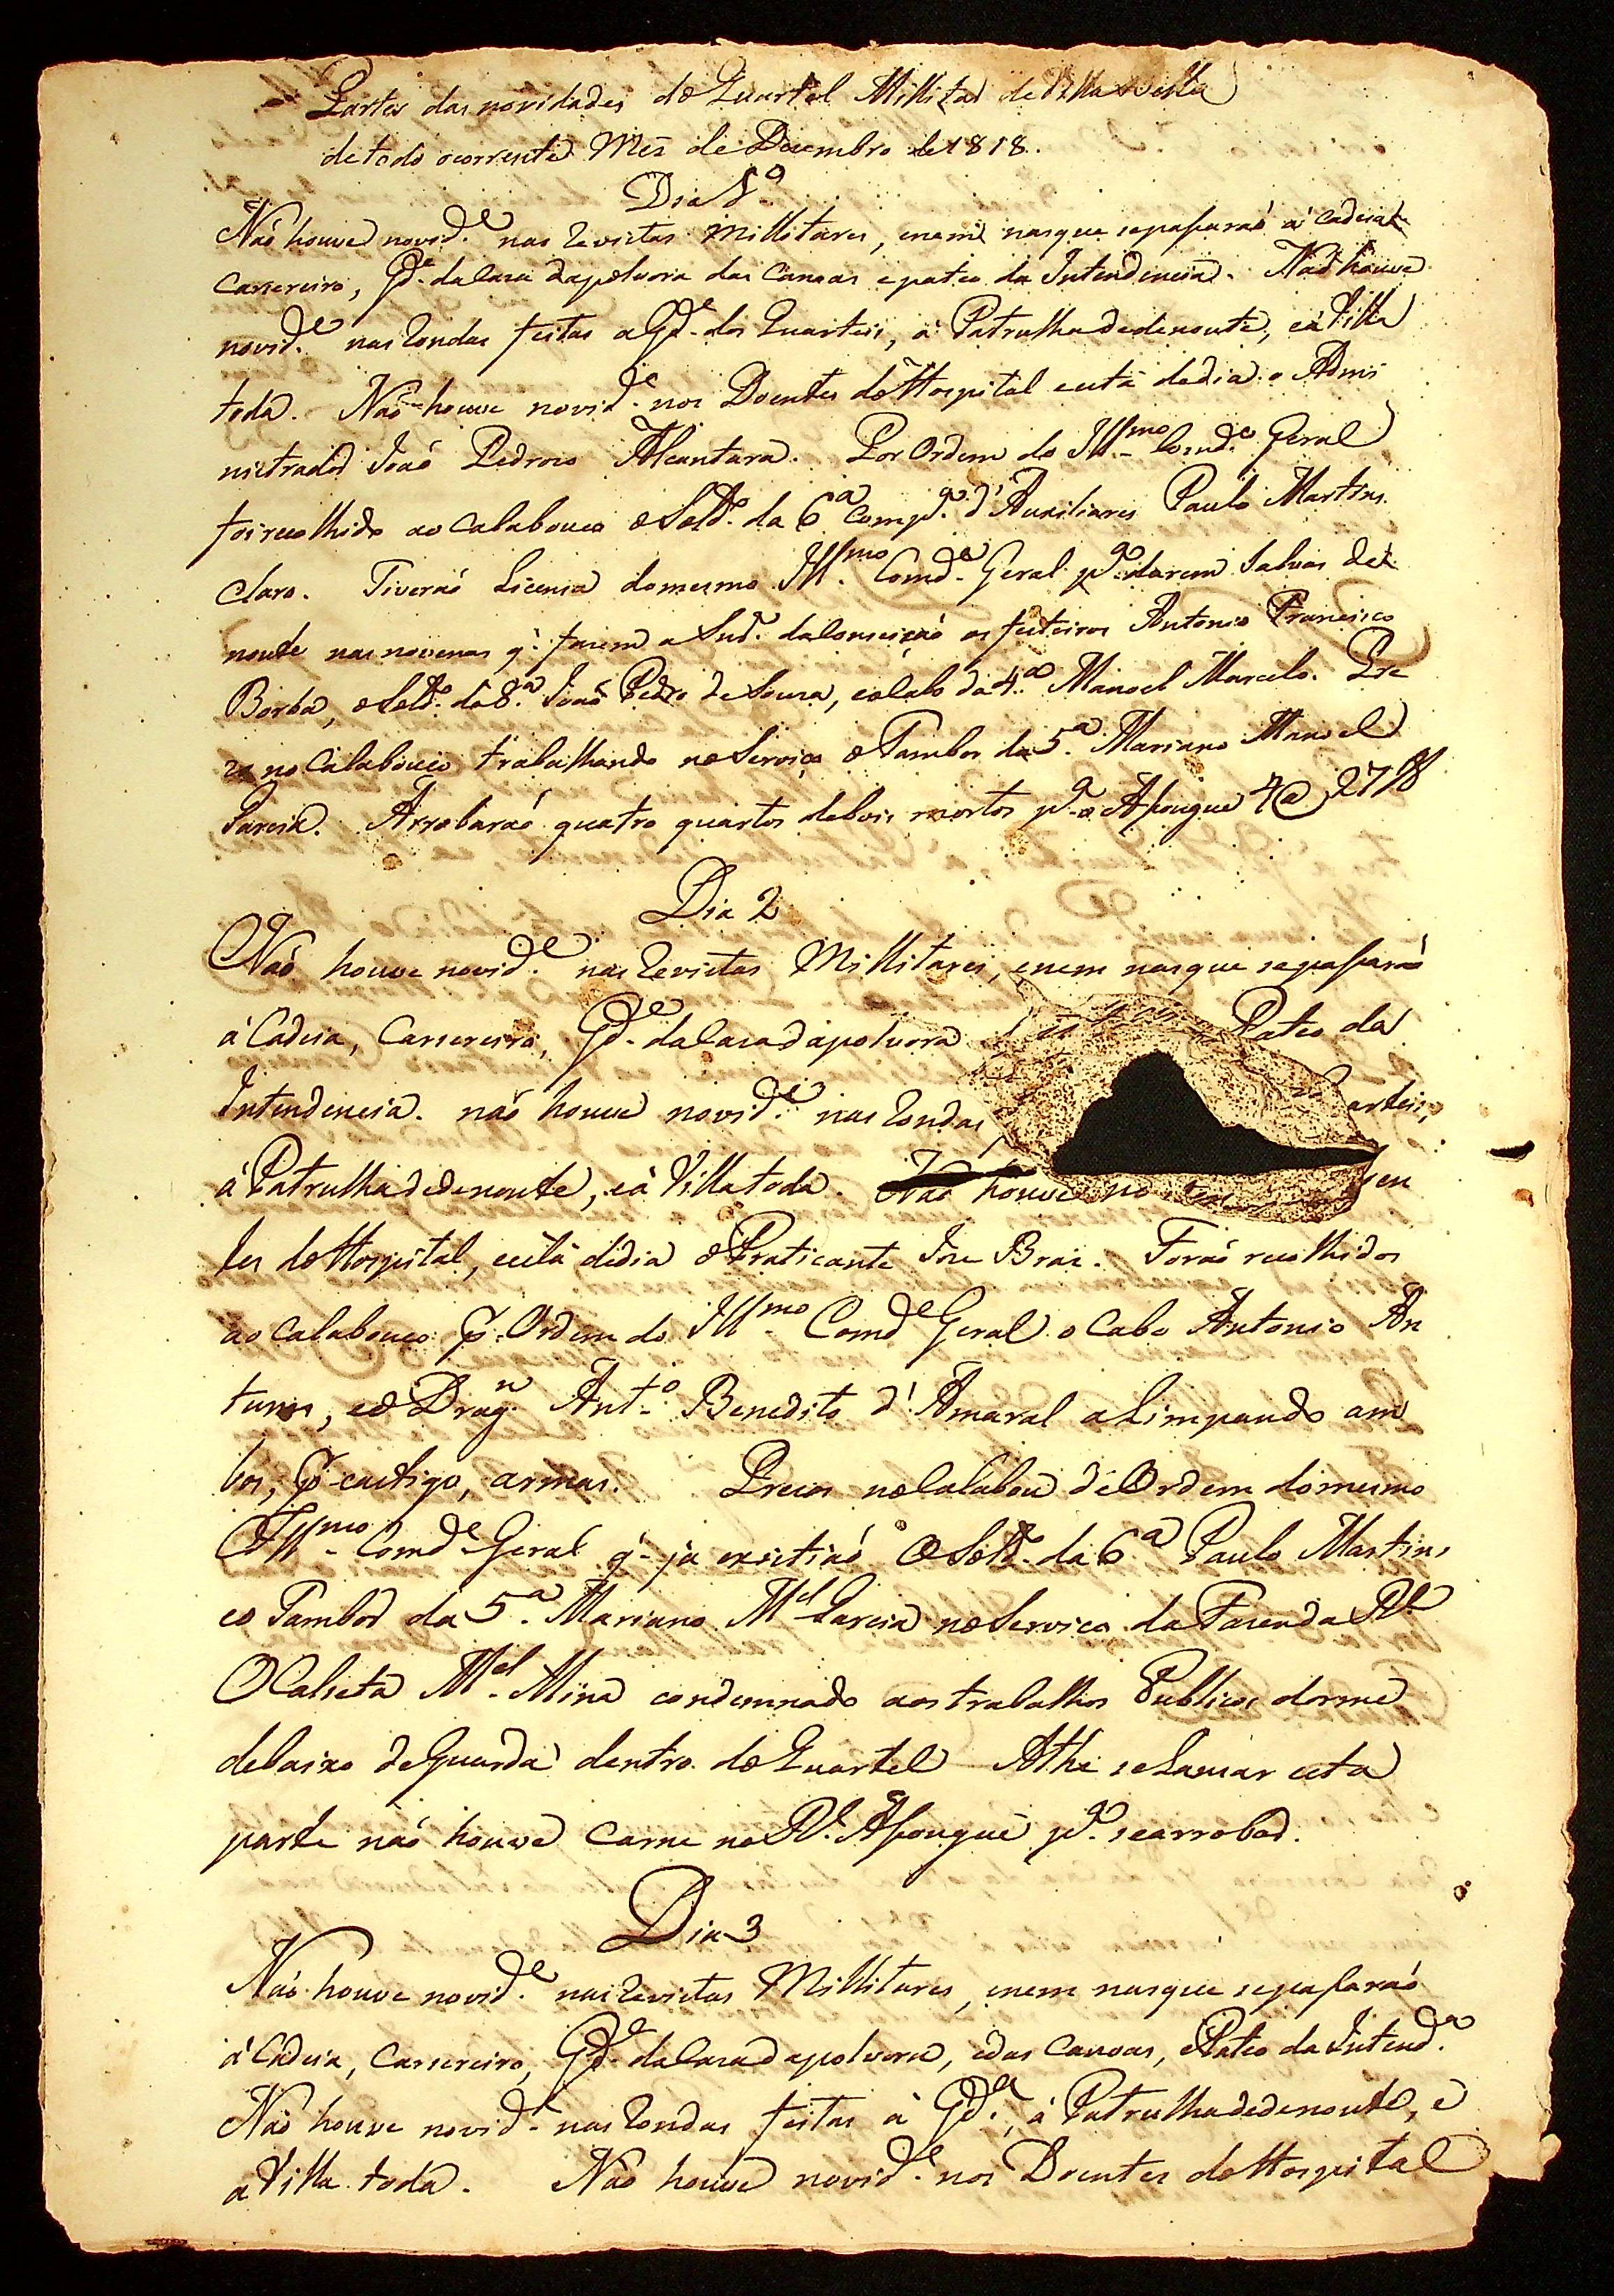 Partes das novidades do Quartel Millitar de Villa Bella
de todo ocorrente Mês de Dezembro de 1818.
Dia 1º
Não houve novid.e nas Revistas Millitares, enem nasque sepaſsaraõ á Cadeia
Carsereiro, Gd.a daCasa dapolvora das Canoas epateo da Intendencia. Naõ houve
novid.e nas Rondas feitas a Gd.a dos Quarteis, á Patrulha dedenoute, eáVilla
toda. Naõ houve novid.e nos Doentes doHospital está dedia o Admi
nistrador Joaõ Pedrozo Alcantara. Por Ordem do Ill.mo Comd.e Geral
foi recolhido ao Calabouco oSold.o da 6.a Comp.a d'Auxiliares Paulo Martins
Claro. Tiveraõ Licensa domesmo Ill.mo Comd.e Geral p.a darem Salvas de
noute nas novenas q.' fasem a Snr.a daConceiçaõ os festeiros Antonio Francisco
Borba, oSold.o da 8.a Joaõ Pedro de Souza, eoCabo da 4.a Manoel Marcelo. Pre
zo no Calabouco trabalhando noServiço oTambor da 5.a Mariano Manoel
Garcia. Arrobaraõ quatro quartos debois mortos p.a o Aſougue 4@ 27 lb
Dia 2
Naõ houve novid.e nas Revistas Millitares, enem nasque sepaſsaraõ
á Cadeia, Carsereiro, Gd.a daCasa dapolvora Pateo da
Intendencia. naõ houve novid.e nas Rondas, arteis,
á Patrulha dedenoute, eá Villa toda. Naõ houve no en
tes doHospital, está dedia oPraticante Joze Braz. Foraõ recolhidos
ao Calabouco p. Ordem do Ill.mo Comd.e Geral o Cabo Antonio An
tunes, eo Drag.n Ant.o Benedito d'Amaral aLimpando am
bos, p. castigo, armas. Prezos noCalabou deOrdem domesmo
Ill.mo Comd.e Geral q.' ja existiaõ OSold.o da 6.a Paulo Martins
eo Tambor da 5.a Mariano M.el Garcia noServico da Fazenda R.l
OCalseta M.el Mina condemnado aos trabalhos Publicos dorme
debaixo deGuarda dentro do Quartel Athe seLansar esta
parte naõ houve Carne no R.l Aſougue p.a searrobar.
Dia 3
Naõ houve novid.e nas Revistas Millitares, enem nasque sepaſsaraõ
á Cadeia, Carsereiro, Gd.a daCasa dapolvora, edas Canoas, ePateo da Intend.a
Naõ houve novid.e nas Rondas feitas á Gd.a, á Patrulha dedenoute, e
a Villa toda. Naõ houve novid.e nos Doentes do Hospital